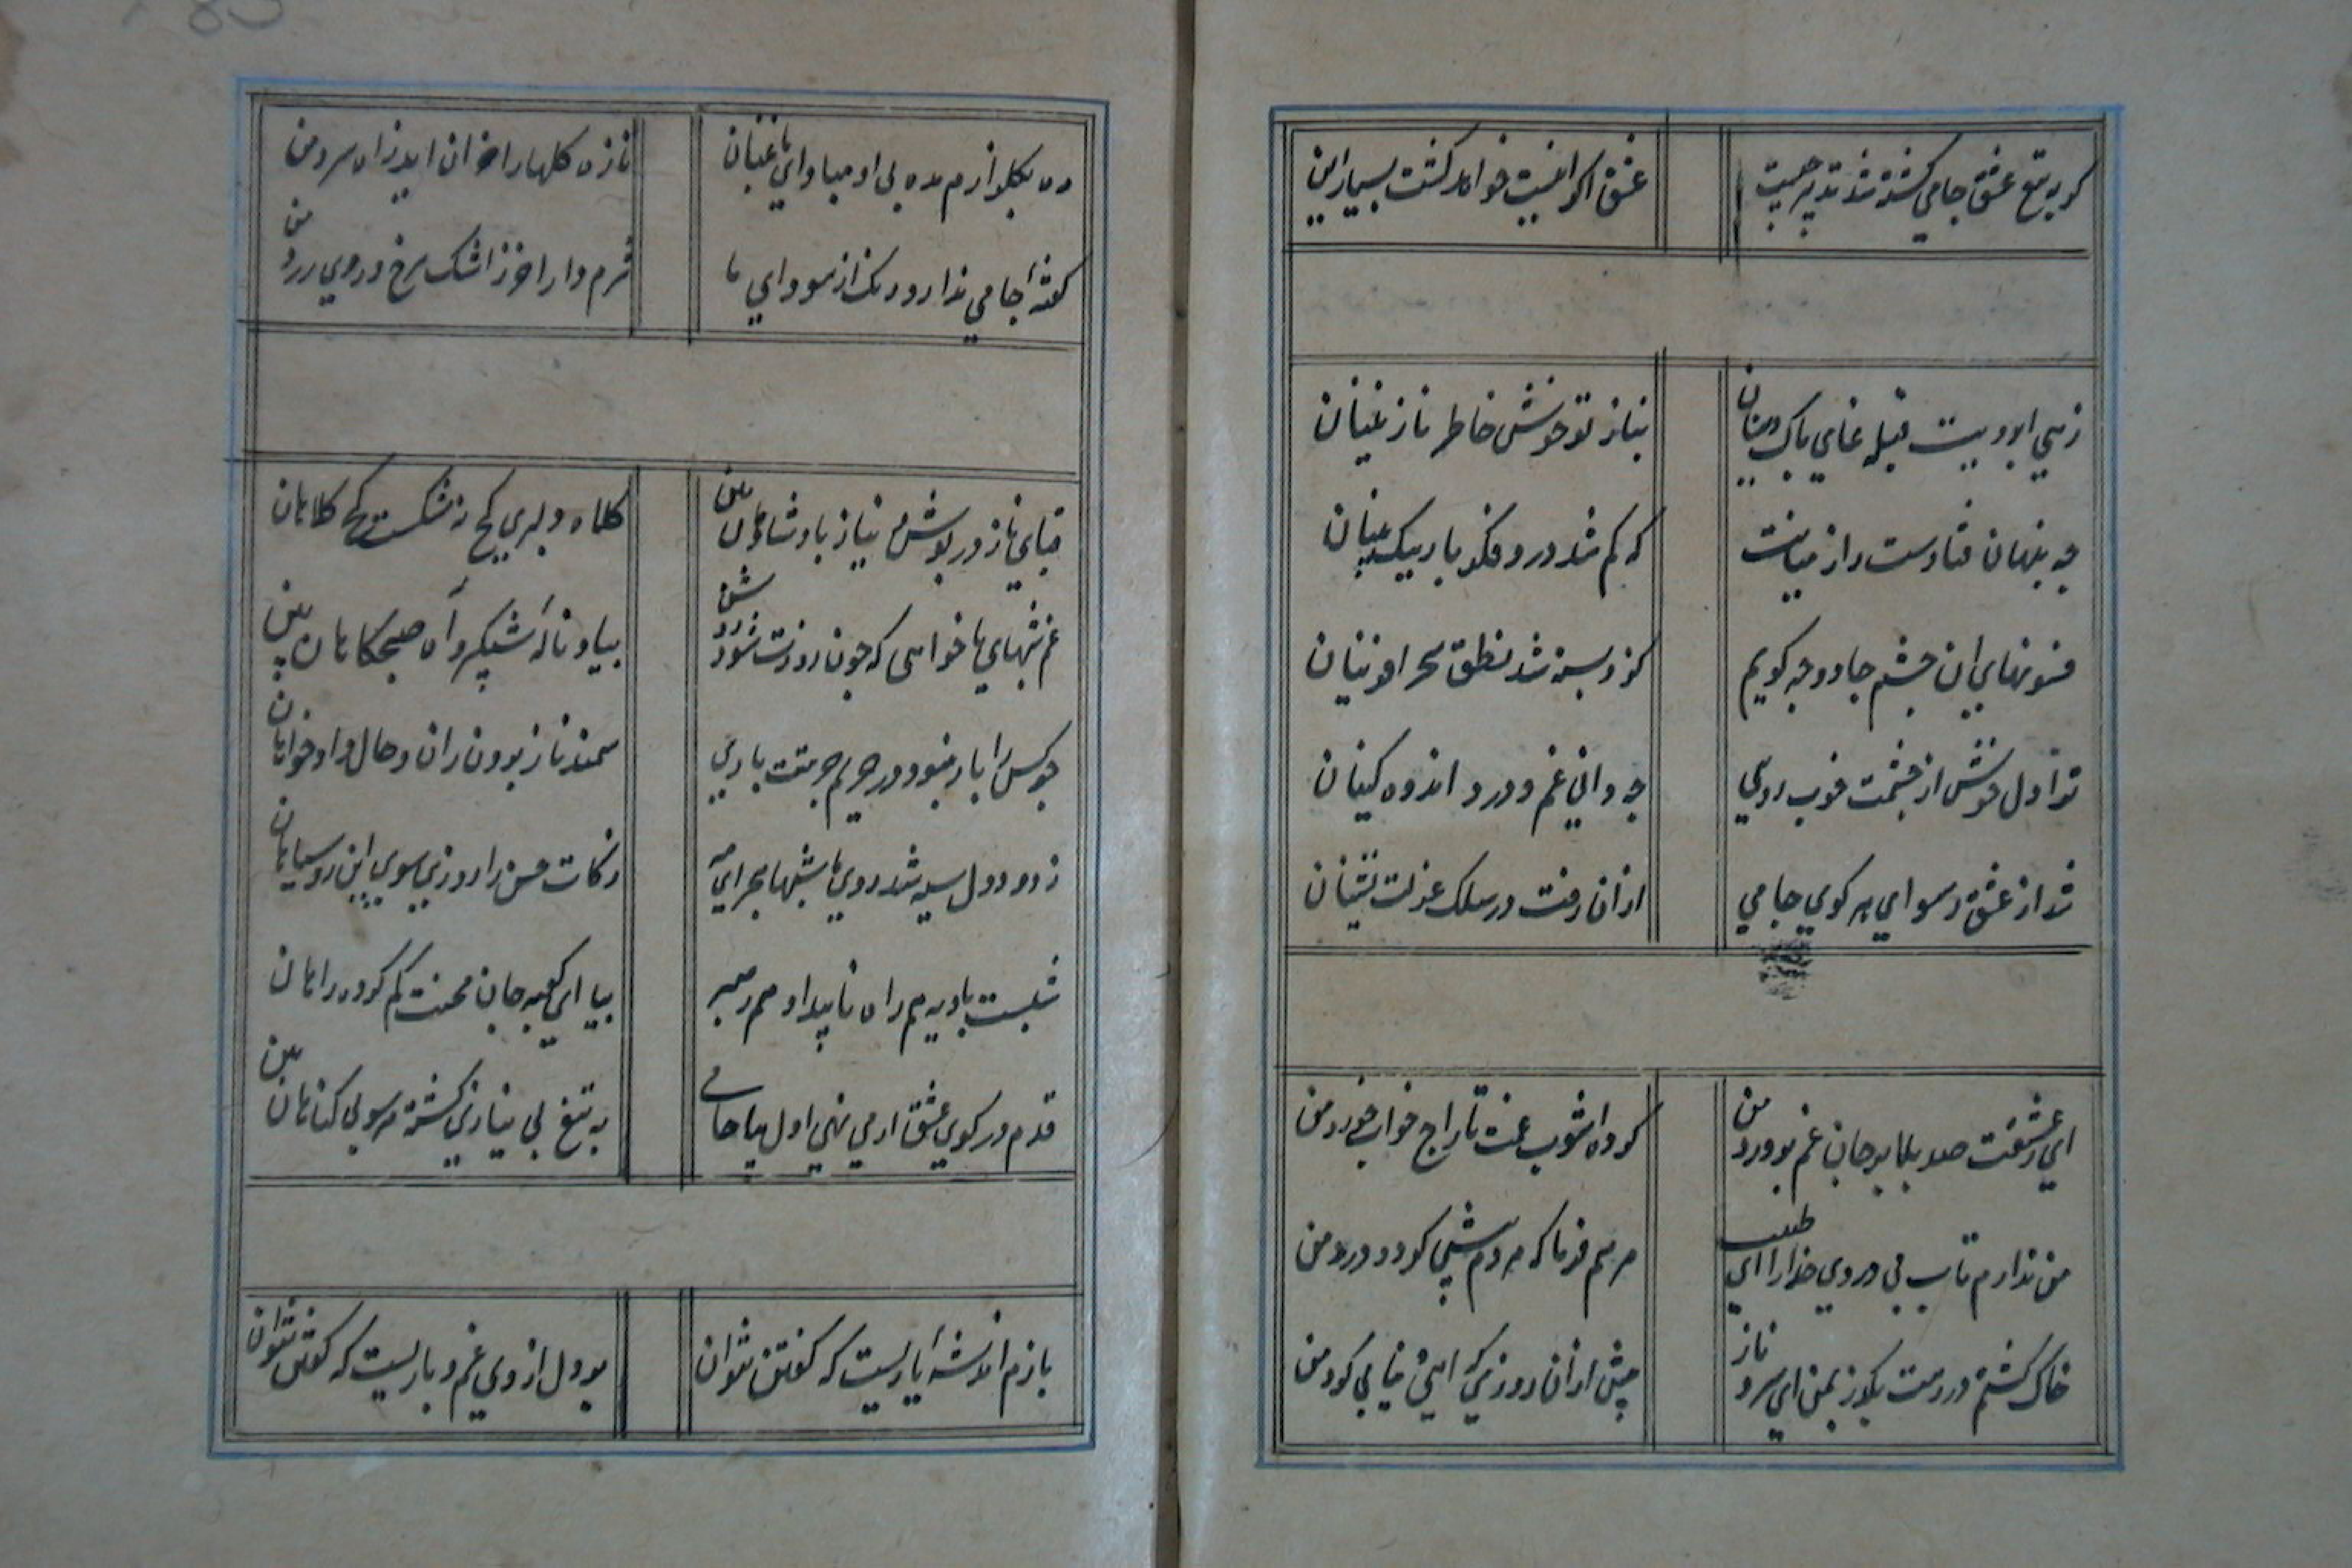 گر به تیغ عشق جامی کشته شد تدبیر چیست
عشق اگر اینست خواهد کشت بسیار این
زهی ابرویت قبله غای پاک دینان
بناز تو خوش خاطر نازنینان
چه پنهان فتادست راز میانت
که گم شد درو فکر باریک بینان
فسونهای ان چشم جادو چه گویم
کزو بسته شد نطق سحر افرینان
ترا دل خوش از حشمت خوب رویی
چه دانی غم و درد اندوه کینان
شد از عشق رسوای هر کوی جامی
ازان رفت در سلک عزلت نشینان
ای ز عشقت صد بلا بر جان غم پرورد من
کرده اشوب غمت تاراج خواب خورد من
من ندارم تاب بی دردی خدارا ای طبیب
مرهم فرما که هردم بیش گردد درد من
خاک گشتم در رهت بگذر بمن ای سرو ناز
پیش ازان روزی که ایی نیابی گرد من
ره بگلزارم مده بی او میا وای باغبان
تازه گلها را خزان اید ز اه سرد من
گفته جامی ندارد رنگ از سودای ما
شرم دار اخر ز اشک سرخ و روی زرد من
قبای ناز در پوش نیاز پادشاهان بین
کلاه دلبری کج نه شکست کج کلاهان
غم شبهای ما خواهی که چون روزت شود روشن
بیا و ناله شبگیر و آه صبحگاهان بین
چو کس را بار نبود در حریم حرمتت باری
سمند ناز بیرون ران و حال داد خواهان
ز دود دل سیه شد روی ما شبها بحرای مه
زکات حسن را روزی سوی این رو سیاهان
شبست بادیه هم راه نا پیدا و هم رهبر
بیا ای کعبه جان محنت گم کرده راهان
قدم در کوی عشق ار می نهی اول بیا جامی
به تیغ بی نیازی کشته هر سو بی گناهان بین
بازم اندیشه یاریست که گفتن نتوان
بر دل از وی غم و باریست که گفتن نتوان